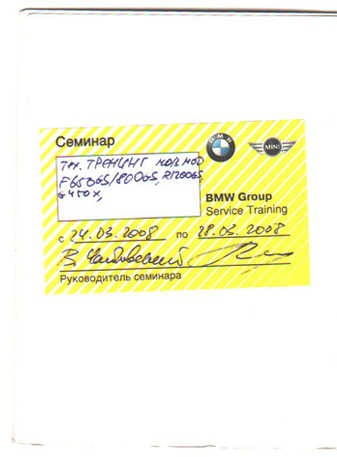 Семинар
Тех. ТРЕНИНГ нов мод
F650GS/800GS, R1200GS,
G450X,
BMW
MINI
BMW Group
Service Training
с 24.03.2008 по 28.03.2008
В.
Руководитель семинара